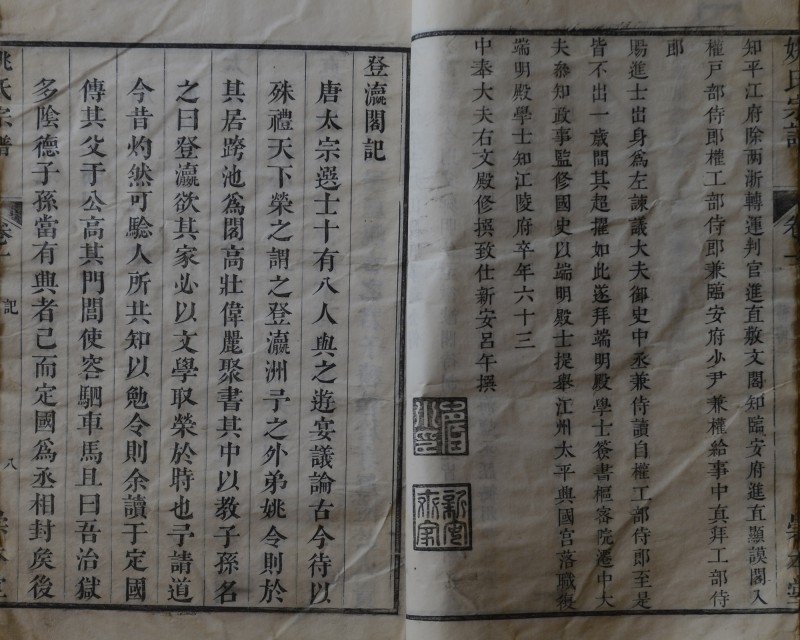 知平江府除兩浙轉運判官進直敷文閣知臨安府進直顯謨閣入
權戶部侍郎權工部侍郎兼臨安府少尹兼權給事中真拜工部侍
郎
賜進士出身為左諫議大夫御史中丞兼侍讀自權工部侍郎至是
皆不出一歲間其超擢如此遂拜端明殿學士簽書樞密院遷中大
夫參知政事監修國史以端明殿士提舉江州太平興國宮落職復
端明殿學士知江陵府卒年六十三
中奉大夫右文殿修撰致仕新安呂午撰
登瀛閣記
唐太宗選士十有八人與之遊宴議論古今待以
殊禮天下榮之謂之登瀛洲予之外弟姚令則於
其居跨池為閣高壯偉麗聚書其中以教子孫名
之曰登瀛欲其家必以文學取榮於時也予請道
今昔灼然可驗人所共知以勉令則余讀于定國
傳其父于公高其門閭使容駟車馬且曰吾治獄
多陰德子孫當有興者已而定國為丞相封矣後
姚氏宗譜
卷一
記
八